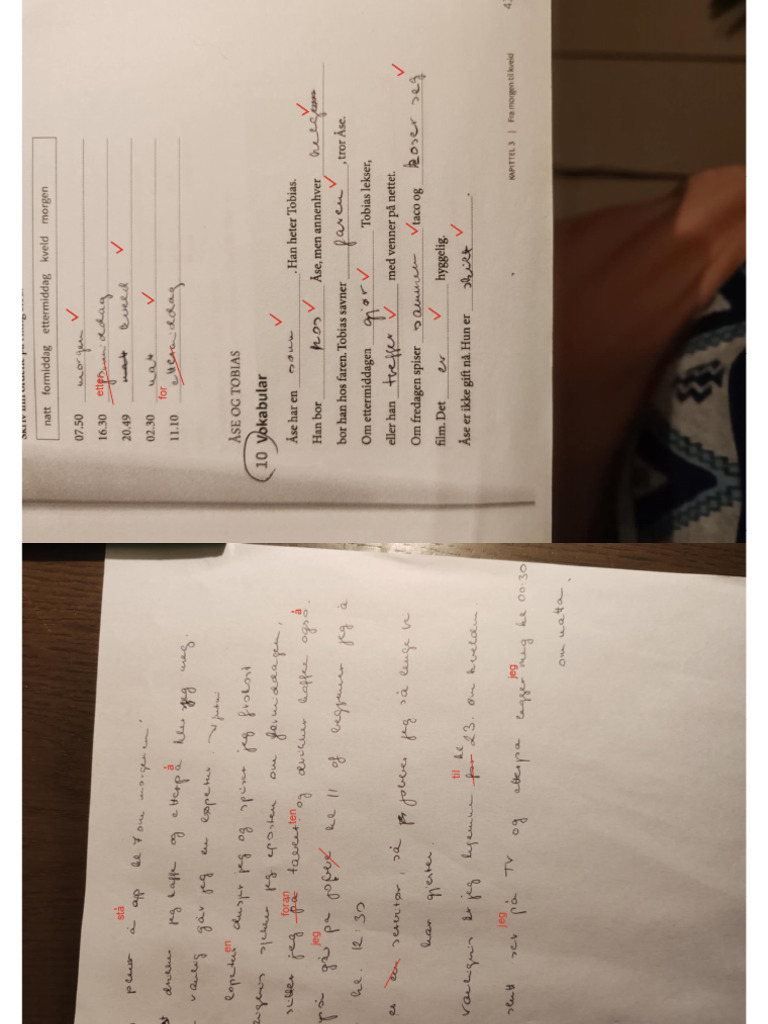 natt formiddag ettermiddag kveld morgen
07.50 morgen
16.30 etter formiddag
20.49 nat kveld
02.30 nat
11.10 for ettermiddag
ÅSE OG TOBIAS
10 Vokabular
Åse har en sønn . Han heter Tobias.
Han bor hos Åse, men annenhver helg
bor han hos faren. Tobias savner faren , tror Åse.
Om ettermiddagen gjør Tobias lekser,
eller han treffer med venner på nettet.
Om fredagen spiser sammen taco og koser seg
film. Det er hyggelig.
Åse er ikke gift nå. Hun er skilt .
KAPITTEL 3 | Fra morgen til kveld
stå
å opp kl 7 om morgenen.
å
drikker jeg kaffe og etterpå kler jeg meg.
vanlig går jeg en
en
dusjer jeg og spiser jeg frokost
sjekker jeg eposten om formiddagen,
foran ten å
sitter jeg på tablet og drikker kaffe også.
jeg
går på jobbe kl 11 og begynner jeg å
kl. 12:30
er en servitør, så jobber jeg så lenge vi
har gjester.
til kl
Vanligvis er jeg hjemme for 23. om kvelden.
jeg jeg
ser på TV og etterpå legger meg kl 00:30
om natta.